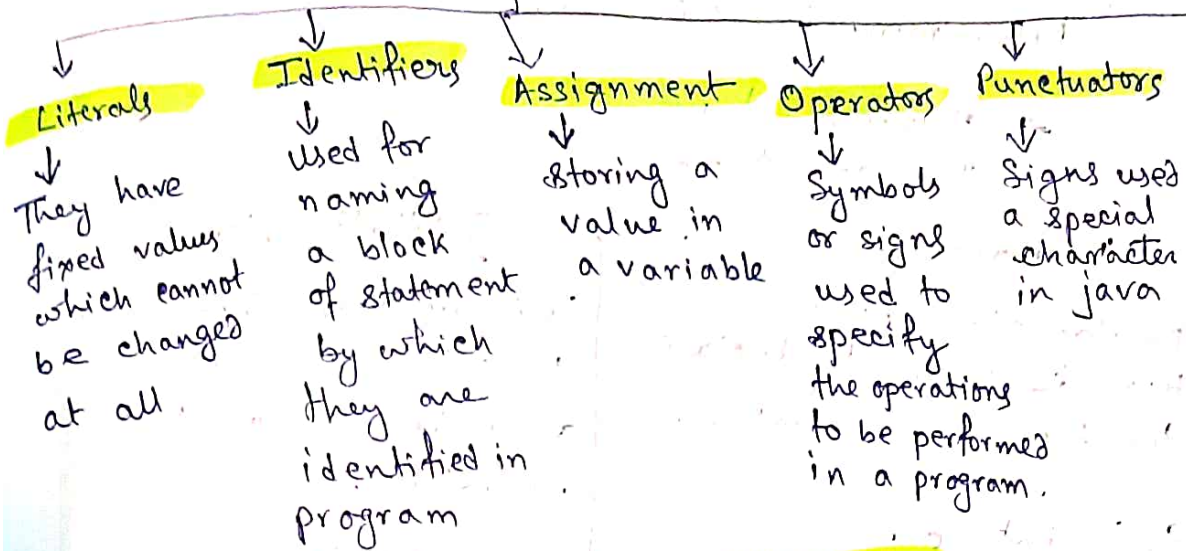 Literals
They have
fixed values
which cannot
be changed
at all.
Identifiers
Used for
naming
a block
of statement
by which
they are
identified in
program
Assignment
storing a
value in
a variable
Operators
Symbols
or signs
used to
specify
the operations
to be performed
in a program.
Punctuators
Signs used
a special
character
in java